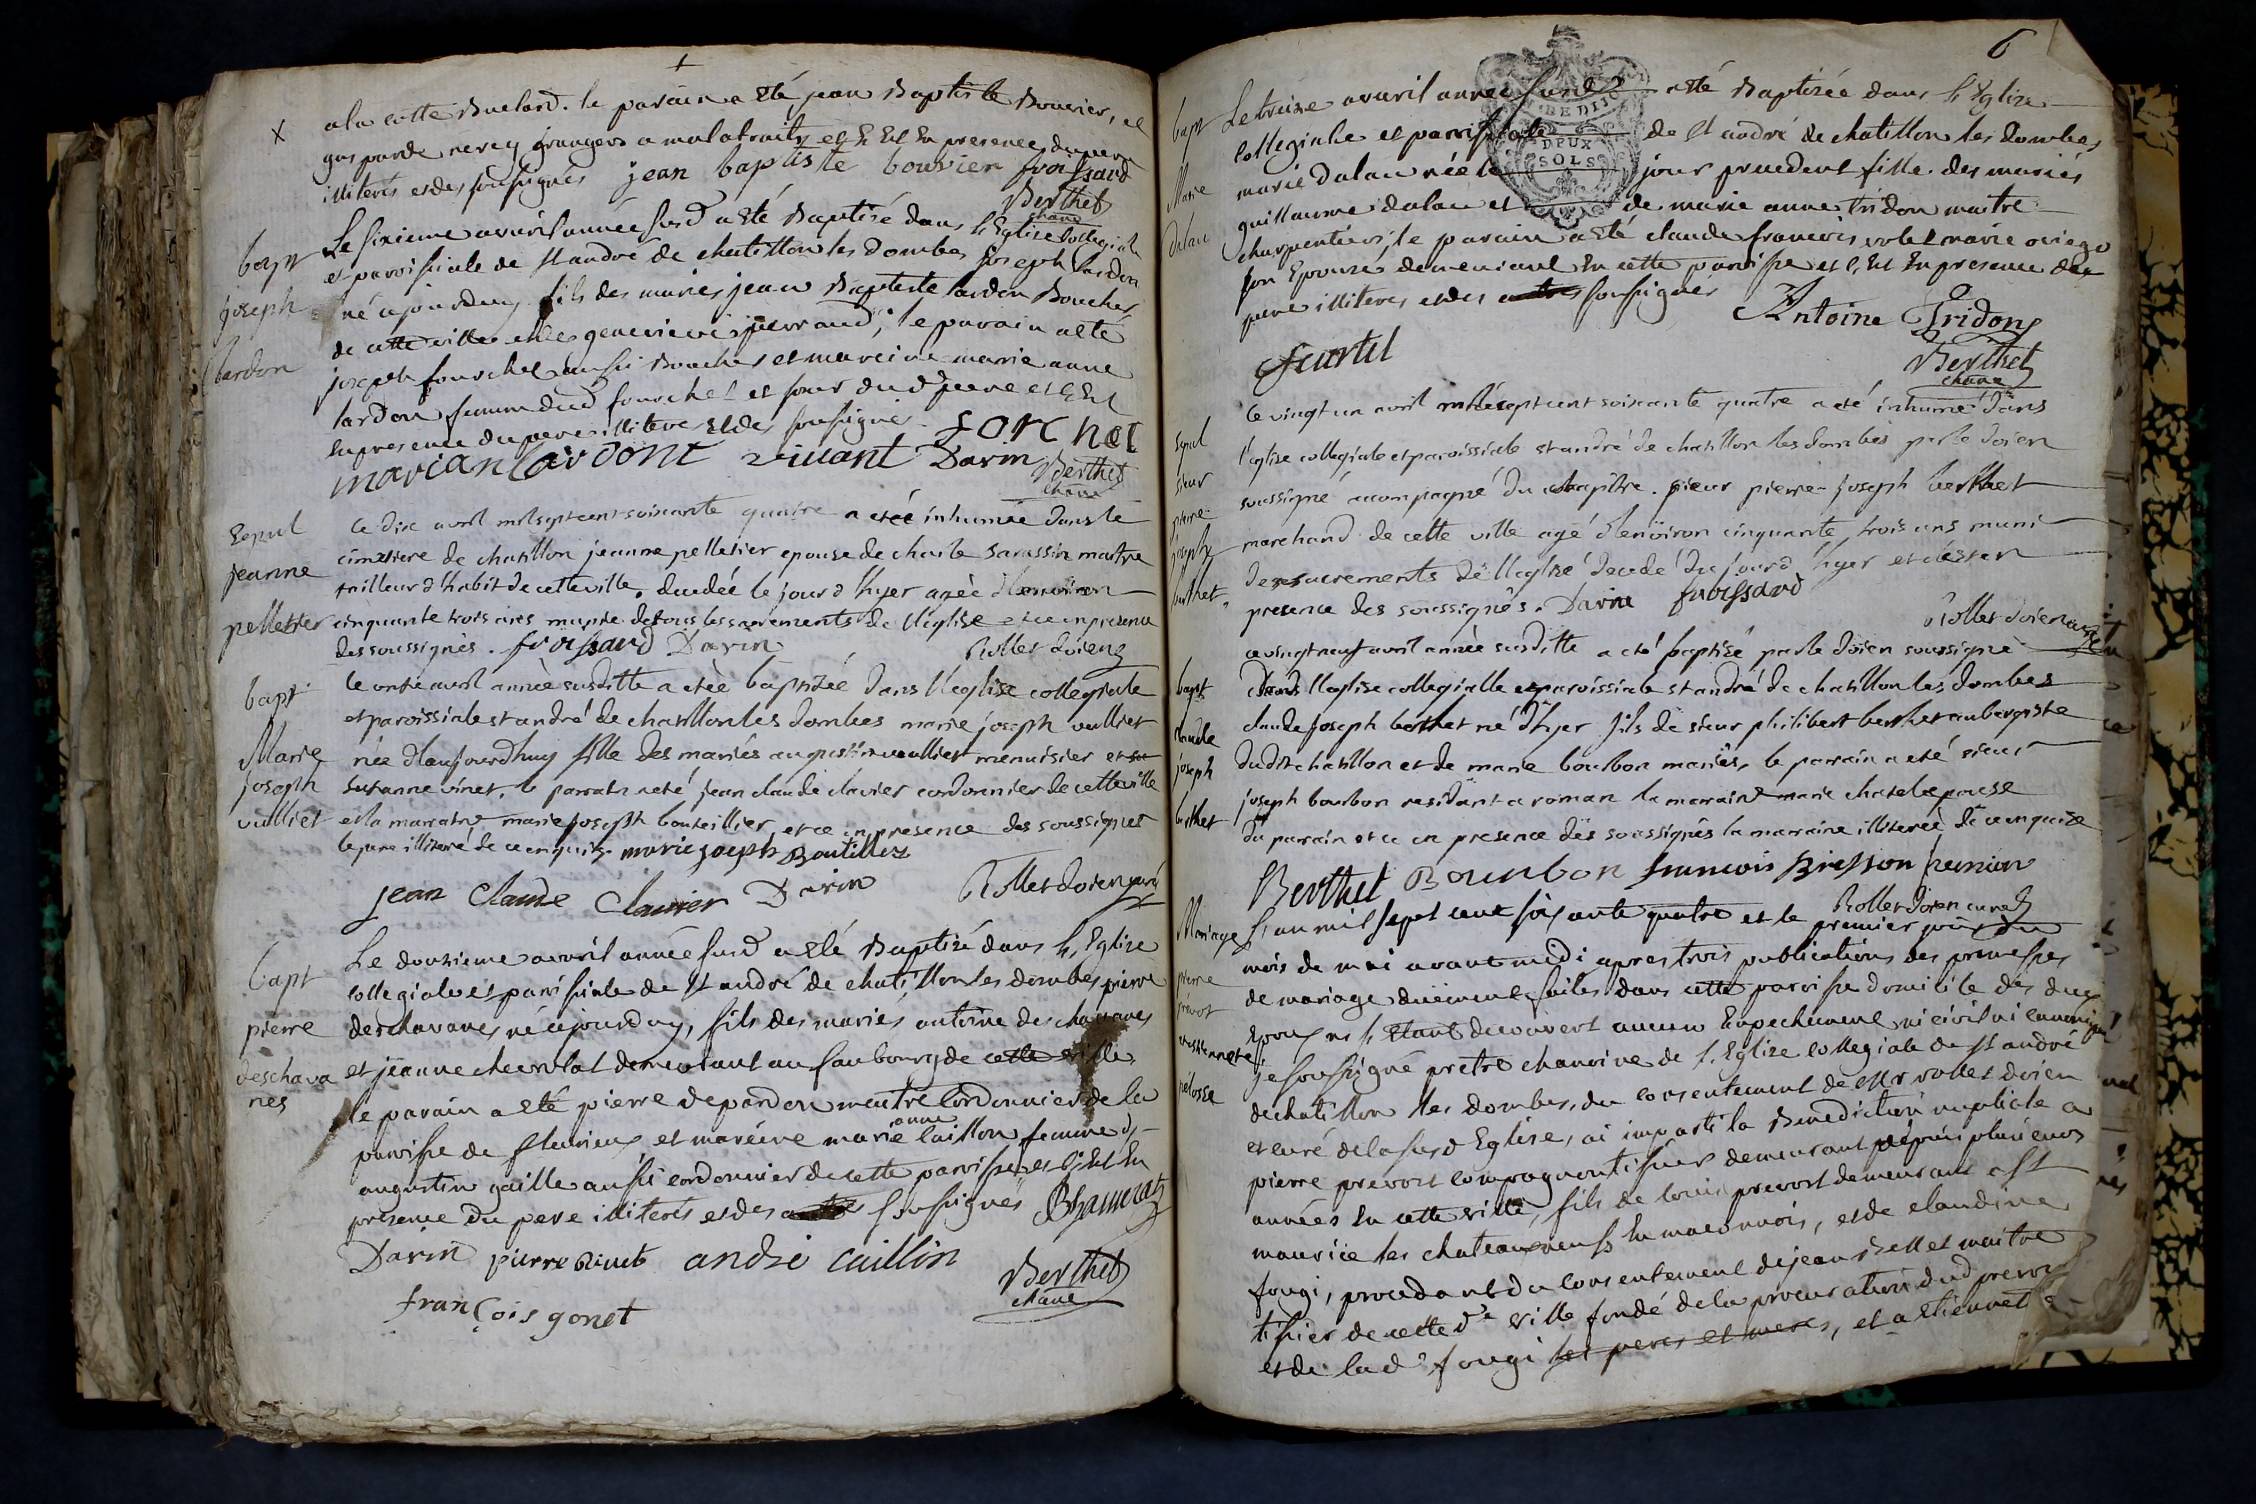 a la cotte Buelard. le parain a Eté jean Baptiste Bouvier, et
gasparde nerey grangers a malatrait, et C Est En presence du pere
illiteres et des soussignés jean baptiste bouvier froissard
Berthet
chane
bapt
joseph
lardon
Le sixieme avvril année susd a Eté Baptisé dans l'Eglise Collegiale
et paroissiale de st andré de chatillon les Dombes joseph lardon
né ajourdhuy fils des mariés jean Baptiste lardon Boucher
de cette ville et de genevieve perraud; le parain a eté
joseph fourchet aussi Boucher et mareine marie anne
lardon femme dud fourchet et sœur dud pere et C Est
En presence du pere illitere et des soussignés forchet
marian lardont vivant Darin Berthet
chane
Sepul
jeanne
pelletier
Le dix avril mil sept cent soixante quatre a etée inhumée dans le
cimetiere de chatillon jeanne pelletier epouse de charle sarassin maitre
tailleur d'habit de cette ville. decedée le jour d'hyer agée d'environ
cinquante trois ans munie de tous les sacrements de l'leglise et ce en presence
des soussignés. froissard Darin Rollet doien
bapt
Marie
joseph
vulliet
le onze avril année susditte a etée baptisée dans l'leglise collegiale
et paroissiale st andré de chatillon les dombes marie joseph vulliet
née d'aujourdhuy fille des mariés augustin vuulliet menuisier et su
susanne vinet, le parrain a eté jean claude clavier cordonnier de cette ville
et la marraine marie joseph bouteillier, et ce en presence des soussignes
le pere illiteré de ce enquis. marie joseph Boutillier
jean Claude Clavier Darin Rollet doien curé
bapt
pierre
deschava
nes
Le douzieme avvril année susd a Eté Baptisé dans l'Eglise
collegiale et paroissiale de st andré de chatillon les dombes pierre
deschavanes né ajourdhuy, fils des mariés antoine deschavanes
et jeanne chevrolat demeurant au faubourg de cette ville
le parain a Eté pierre depardon maitre Cordonnier de la
paroisse de fleurieux et mareine marie anne caillon femme d,
augustin gaille aussi cordonnier de cette paroisse, et C Est En
presence du pere illiteres et des autres soussignés
Darin pierre Rivet andré caillon
Berthet
chane
françois gonet
6
bapt
Marie
dalau
Le treize avvril année susd a eté Baptisée dans l'Eglise
Collegiale et paroissiale de st andré de chatillon les dombes
DEUX
SOLS
marie dalau née le jour precedent fille des mariés
guillaume dalau et de marie anne tridon maitre
charpentiers, le parain a Eté claude francois volet marie
son Epouze demeurant En cette paroisse et C Est En presence des
pere illiteres et des autres soussignes Antoine Tridon
feurtel
Berthet
chane
sepul
sieur
pierre
joseph
berthet
le vingt un avril mil sept cent soixante quatre a eté inhumé dans
l'eglise collegiale et paroissiale st andré de chatillon les dombes par le doien
soussigné acompagné du chapitre. sieur pierre joseph berthet
marchand de cette ville agé d'environ cinquante trois ans muni
des sacrements de l'leglise decedé du jourd'hyer et ce en
presence des soussignés. Darin froissard
Rollet doien curé
bapt
claude
joseph
berthet
ce vingt neuf avril année susditte a eté baptisé par le doien soussigné
dans l'leglise collegialle et paroissiale st andré de chatillon les dombes
claude joseph berthet né d'hyer fils de sieur philibert berthet aubergiste
dudit chatillon et de marie bourbon mariés, le parrain a eté sieur
joseph bourbon residant a roman la marraine marie chatel epouse
du parrain et ce en presence des soussignés la marraine illiterée de ce enquise
Berthet Bourbon francois Brisson
Rollet doien curé
Mariage
pierre
prevot
et etiennete
pelosse
L'an mil sept cent soixante quatre et le premier jour du
mois de mai avant midi apres trois publications des promesses
de mariage duëment faites dans cette paroisse domicile des dus
Epoux ne s'étant decouvert aucun Enpechement ni civil ni canonique
je soussigné pretre chanoine de l'Eglise collegiale de st andré
de chatillon les dombes, du consentement de Mr rollet doien
et curé de la susd Eglise, ai imparti la Benediction nuptiale a
pierre prevost compagnon tissier demeurant depuis plusieurs
années En cette ville, fils de louis prevost demeurant a st
maurice les chateauneuf En maconnois, et de claudine
fongi, procedant du consentement de jean Bellet maitre
tissier de cette de ville fondé de la procuration dud prevost
et de lad fongi ses peres et meres, et a Etiennet